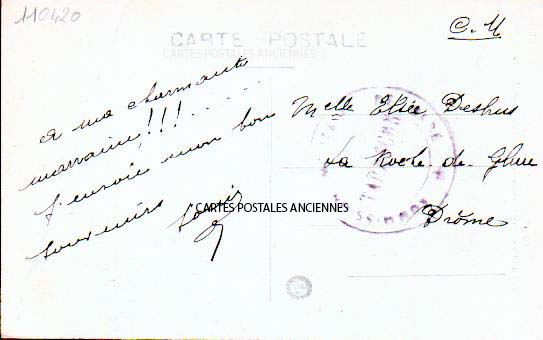 110420
C. M
CARTE POSTALE
CARTES POSTALES ANCIENNES
à ma charmante
marraine!!!.....
J'envoie mon bon
souvenirs
Melle Elise
La Roche-de-Glun
Drôme
CARTES POSTALES ANCIENNES